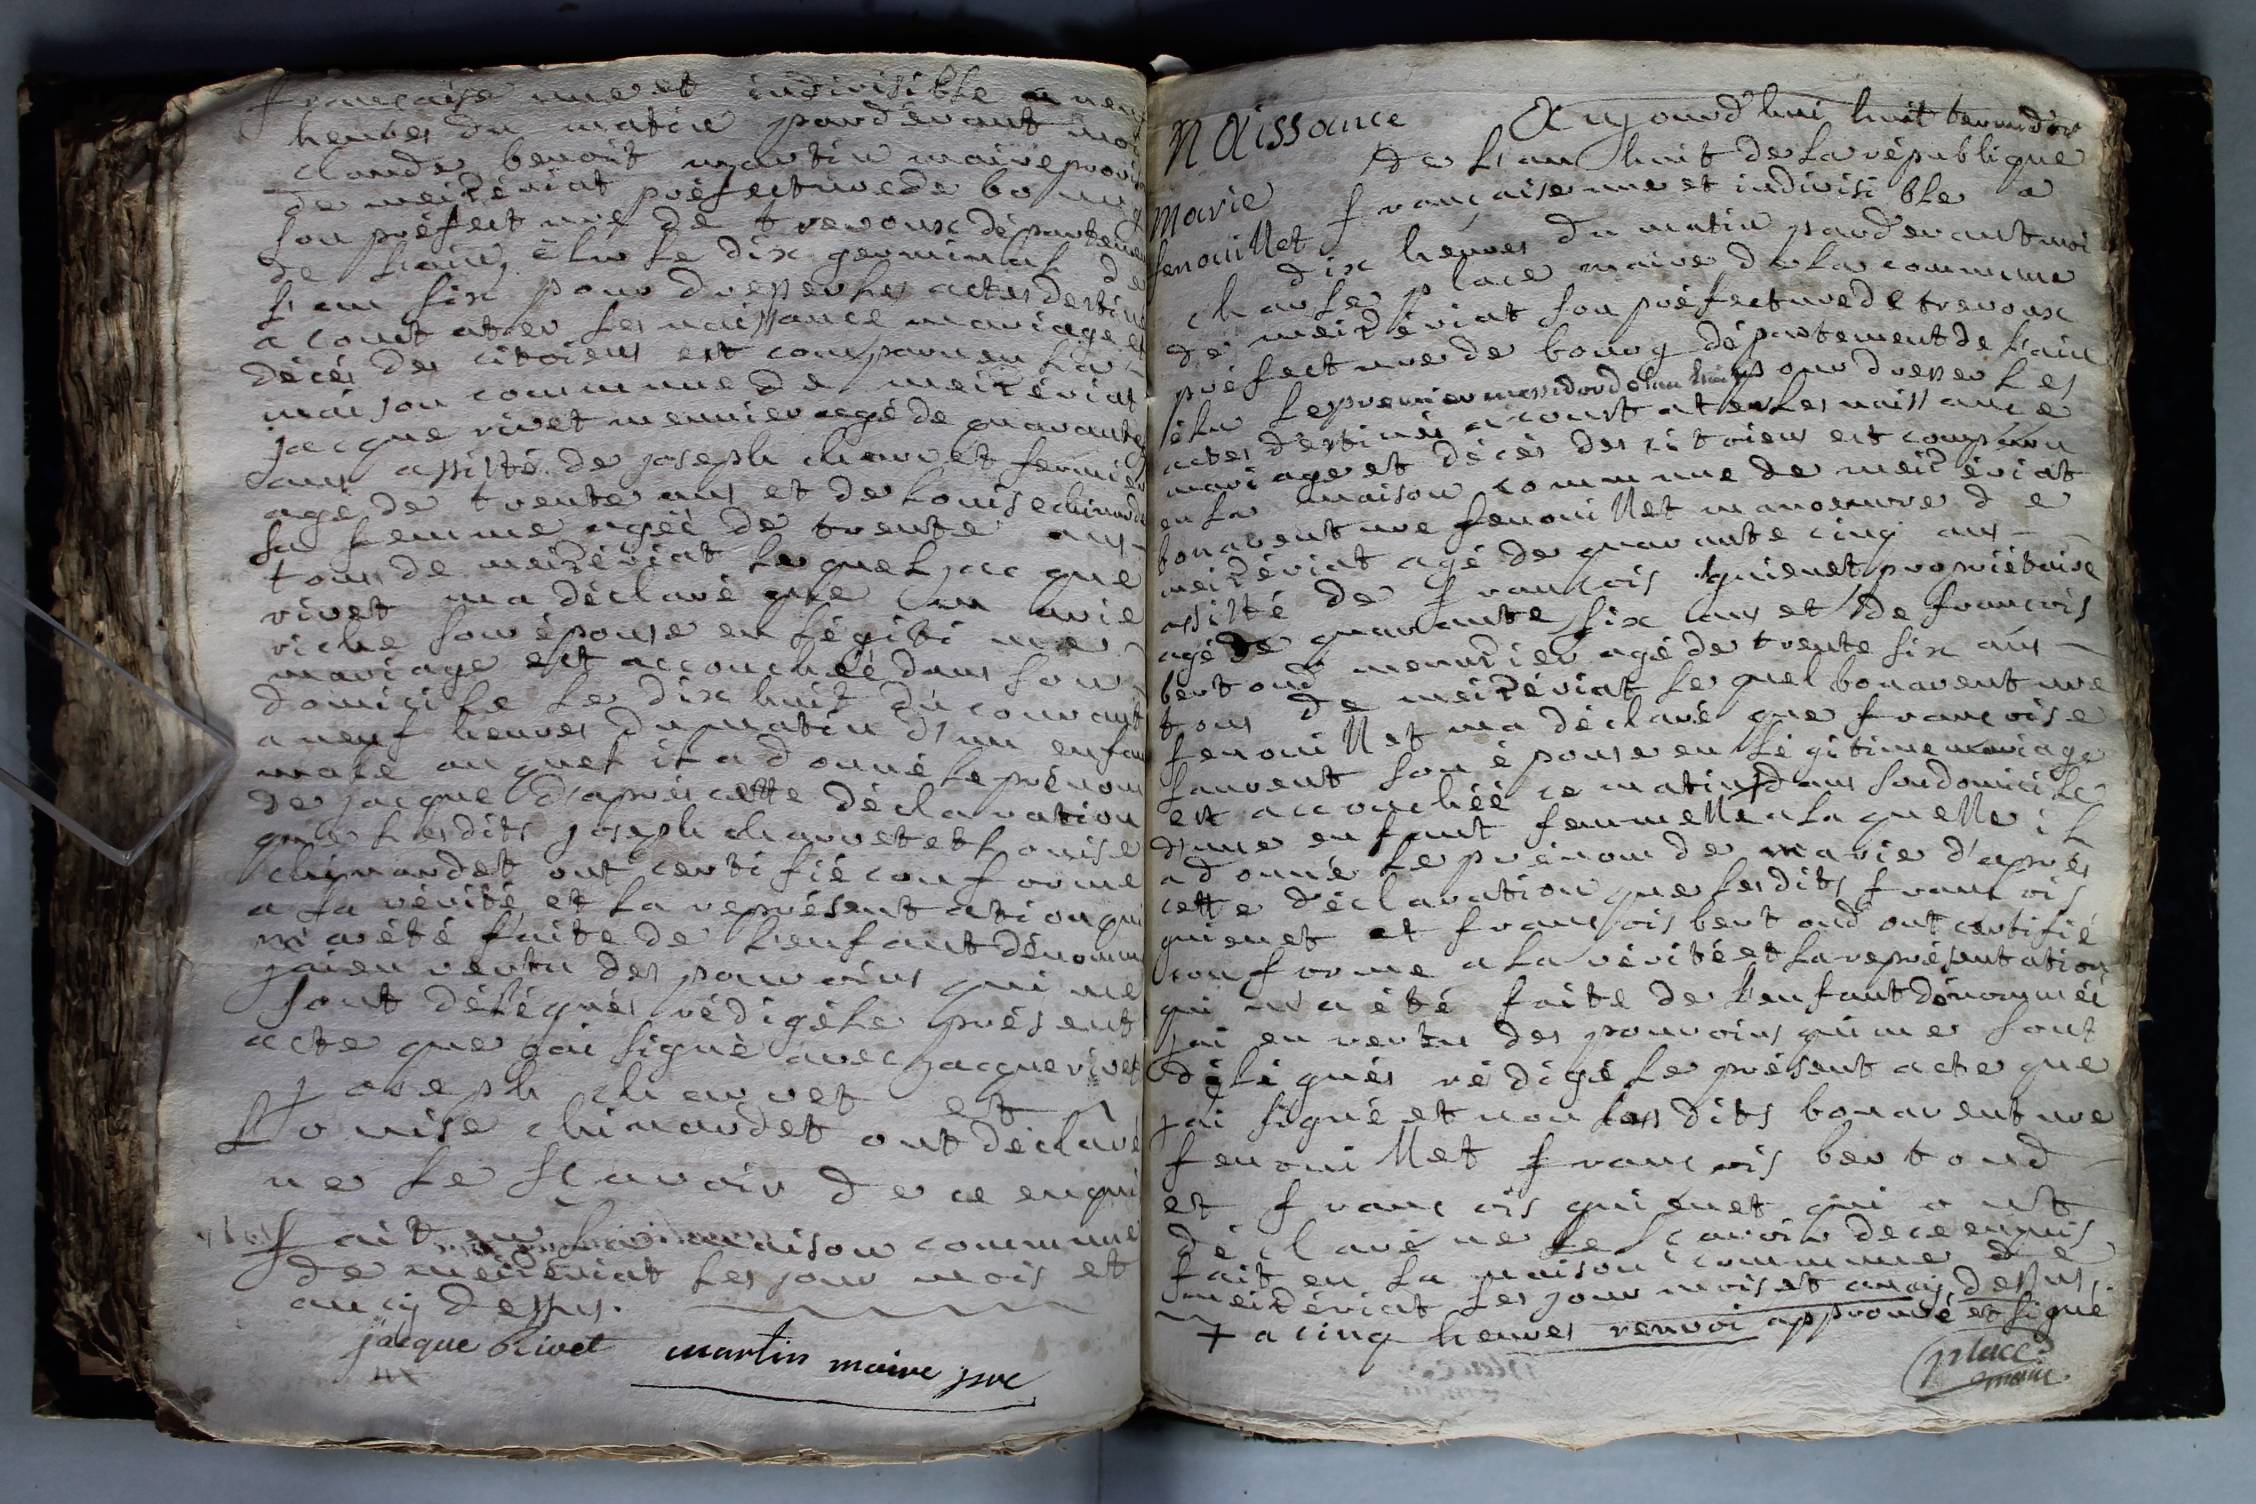 française une et indivisible a neuf
heures du matin pardevant moi
claude benoit martin maire provi
de meizériat préfecture de bourg
sou préfecture de trevoux départeme
de l'ain élu le dix germinal de
l'an six pour dresser les actes destinés
a constater les naissance mariage et
décés des citoiens est comparu en la
maison commune de meizériat
jacque rivet meunier agé de quarante
ans assisté de joseph charvet fermier
agé de trente ans et de Louise chinarde
sa femme agéé de trente ans
tous de meizériat lequel jacque
rivet ma déclaré que marie
riche son épouse en légitime
mariage est accouchéé dans son
domicile le dix huit du courant
a neuf heures du matin d'un enfan
male auquel il a donné le prénom
de jacque d'aprés cette déclaration
que lesdits joseph charvet et Louise
chinardet ont certifié conforme
a la vérité et la représentation qui
m'a été faite de l'enfant dénommé
jai en vertu des pouvoirs qui me
sont délégués rédigé le présent
acte que jai signé avec jacque rivet
joseph charvet et
Louise chinardet ont déclaré
ne le sçavoir de ce enqui
fait en la maison commune
de meizériat les jour mois et
an cy dessus.
jacque Rivet martin maire pve
Naissance
Marie
fenouillet
Aujourd'hui huit termidor
de l'an huit de la république
française une et indivisible a
dix heures du matin pardevant moi
charle place maire de la commune
de meizériat sou préfecture de trevoux
préfecture de bourg département de l'ain
élu le premier messidor de l'an huit pour dresser les
actes destinés a constater les naissance
mariage et décés des citoiens est comparu
en la maison commune de meizériat
bonaventure fenouillet manoeuvre de
meizériat agé de quarante cinq ans
assisté de françois guienet propriétaire
agé de quarante six ans et de françois
bertoud menuzier agé de trente six ans
tous de meizériat lequel bonaventure
fenouillet ma déclaré que françoise
laurent son épouse en légitime mariage
est accouchéé ce matin + dans son domicile
d'une enfant femmelle a laquelle il
a donné le prénom de marie d'aprés
cette déclaration que lesdits françois
guienet et françois bertoud ont certifié
conforme a la vérité et la représentation
qui m'a été faite de l'enfant dénomméé
jai en vertu des pouvoirs qui me sont
délégués rédigé le présent acte que
jai signé et non lesdits bonaventure
fenouillet françois bertoud
et françois guienet qui ont
déclaré ne le scavoir de ce enquis
fait en la maison commune de
meizériat les jour mois et an cy dessus.
+ a cinq heures renvoi approuvé et signé
place
maire